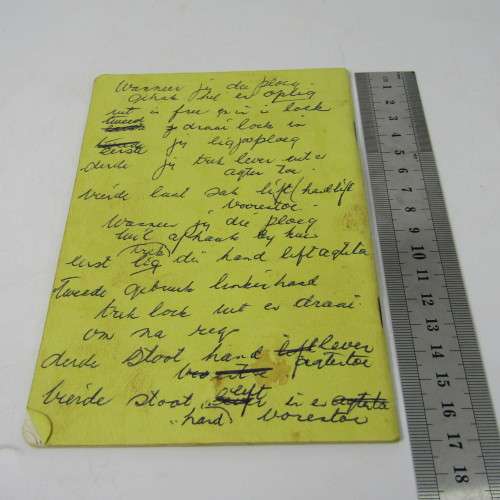 Wanneer jy die ploeg
gehak het en oplig
uit is free en in is lock
tweede draai lock in
eerste jy lig ploeg
derde jy trek lever uit en
agter toe
vierde laat sak lift/handlift
voorentoe
Wanneer jy die ploeg
wil afhaak by huis
eerst lig die hand lift agterto
Tweede gebruik linkerhand
trek lock uit en draai
om na regs
derde stoot hand lever
agtertoe
Vierde stoot lift in en
hand vorentoe
1 2 3 4 5 6 7 8 9 10 11 12 13 14 15 16 17 18